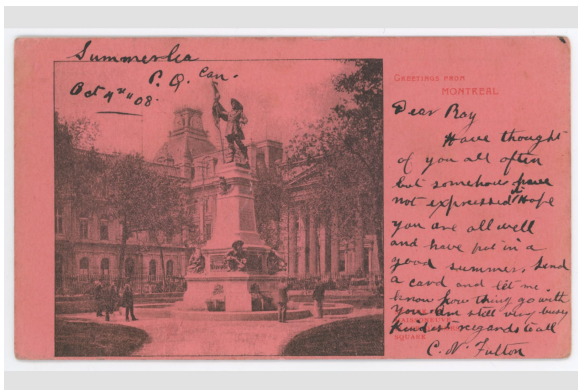 Summerlea
P. Q. Can.
Oct 4th 08.
GREETINGS FROM
MONTREAL
Dear Roy
Have thought
of you all often
but somehow have
not expressed it Hope
you are all well
and have put in a
good summer. Send
a card and let me
know how thing go with
you am still very busy
Kindest regards to all
SQUARE
C. N. Fulton